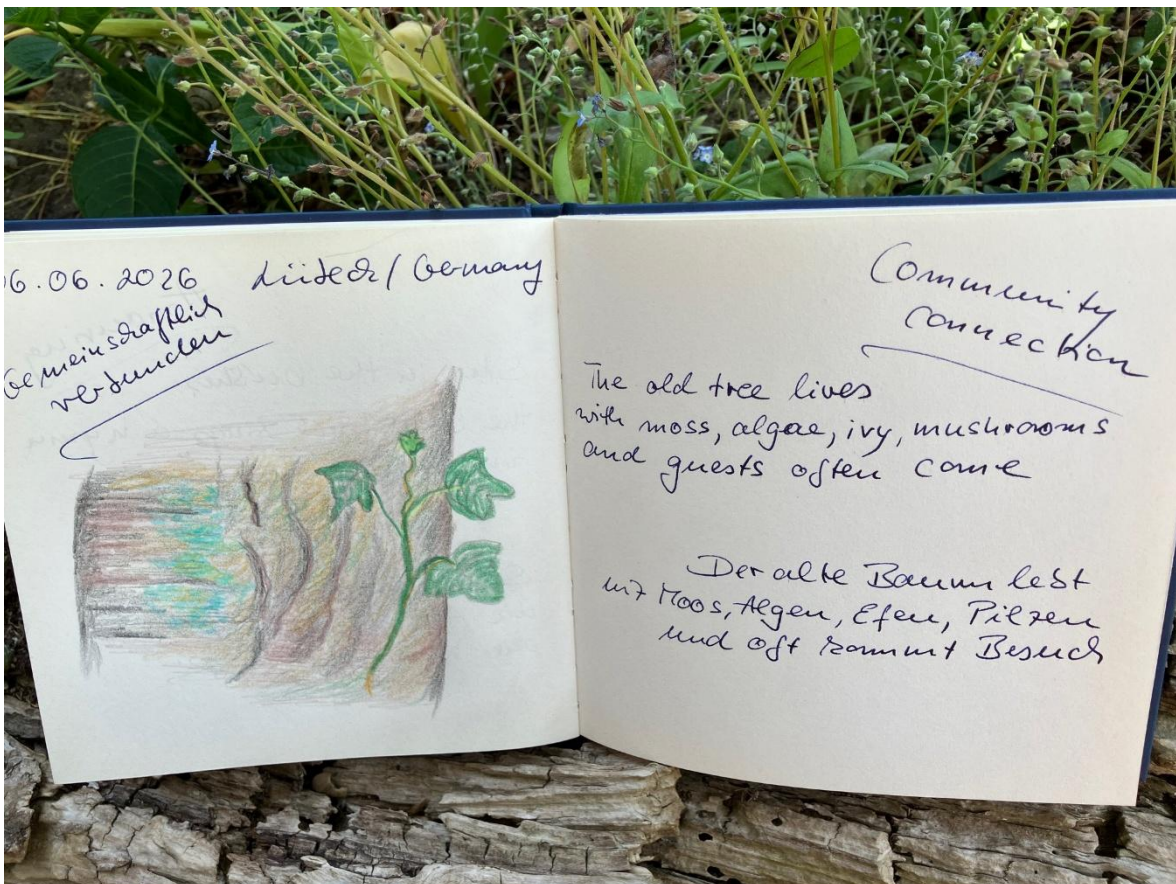 06.06.2026 Lübeck / Germany
Gemeinschaftlich
verbunden
Community
connection
The old tree lives
with moss, algae, ivy, mushrooms
and guests often come
Der alte Baum lebt
mit Moos, Algen, Efeu, Pilzen
und oft kommt Besuch